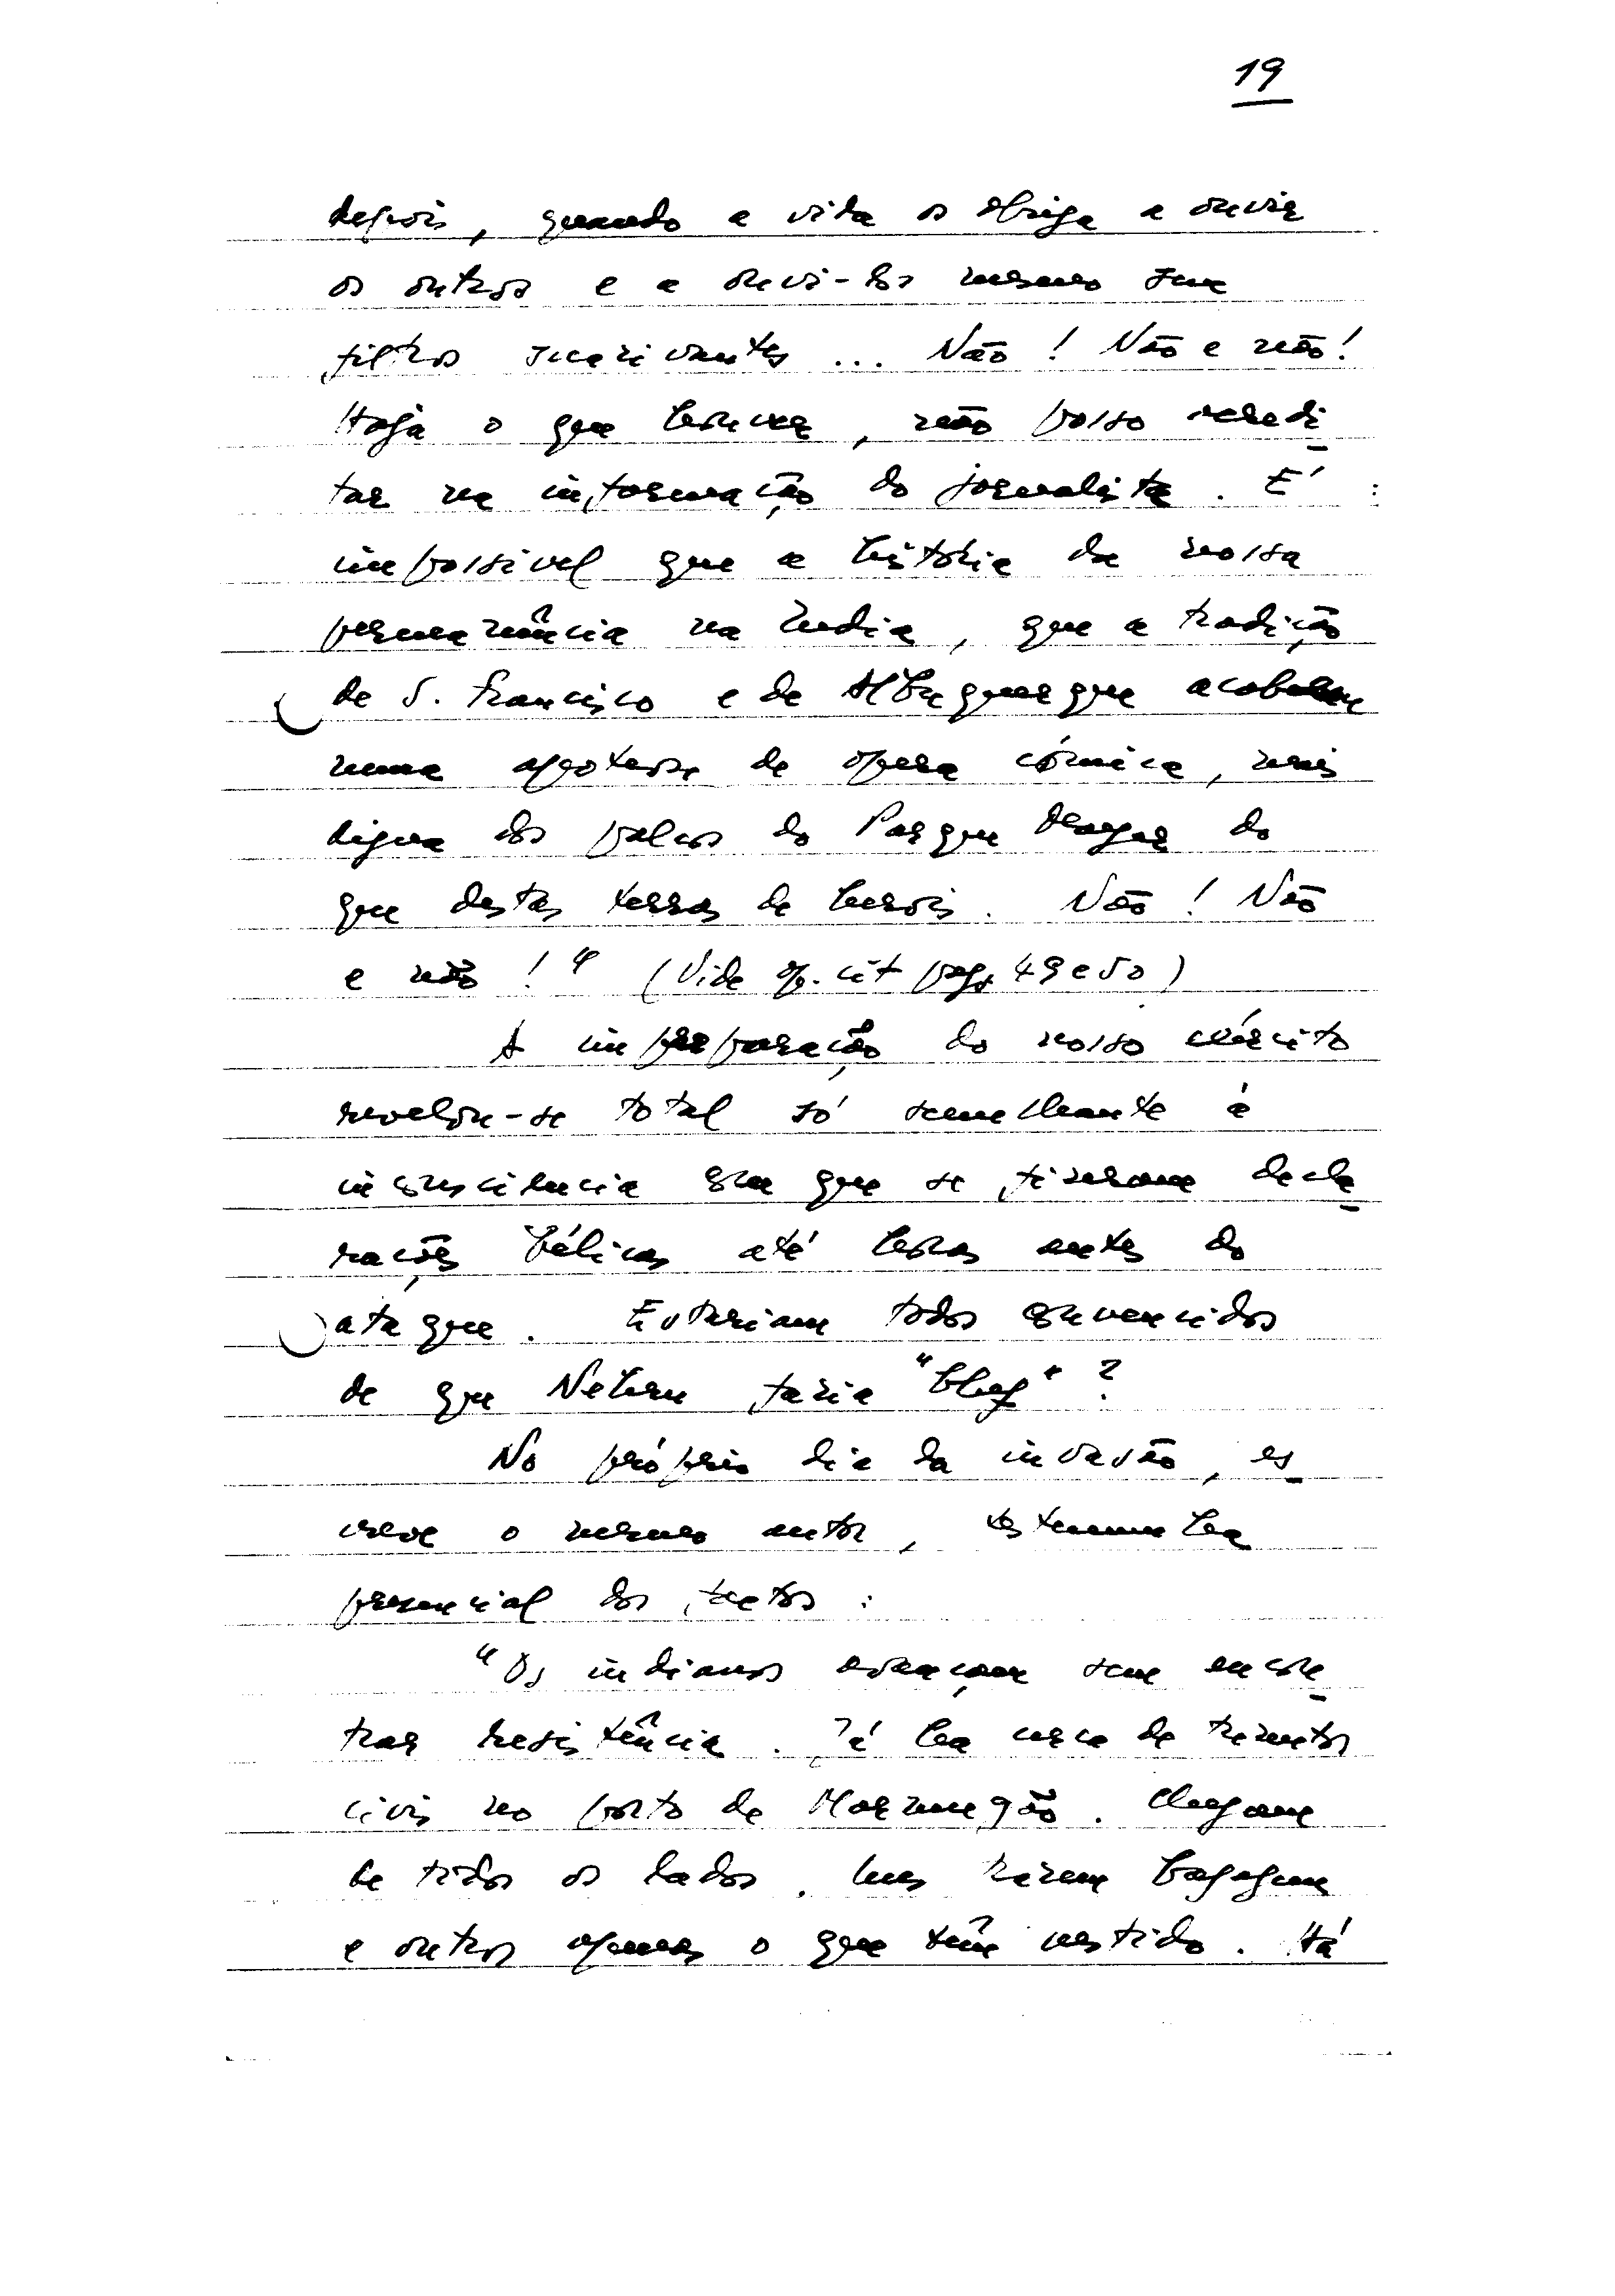 19
depois, quando a vida os obriga a ouvir
os outros e a ouvi-los mesmo sem
filtros suavizantes... Não! Não e não!
Haja o que houver, não posso acredi_
tar na informação do jornalista. E'
impossivel que a história da nossa
permanência na India, que a tradição
de S. Francisco e de Albuquerque acabem
numa apoteose de opera cómica, mais
digna dos palcos do Parque Mayer do
que destas terras de herois. Não! Não
e não!" (Vide op. cit pags 49 e 50)
A impreparação do nosso exército
revelou-se total só semelhante à
inconsciencia em que se fizeram decla_
rações bélicas até horas antes do
ataque. Estariam todos convencidos
de que Nehru faria "bluf"?
No próprio dia da invasão, es_
creve o mesmo autor, testemunha
presencial dos factos:
"Os indianos avançam sem encon_
trar resistência. Já ha cerca de trezentos
civis no porto de Mormugão. Chegam
de todos os lados. Uns trazem bagagem
e outros apenas o que têm vestido. Há